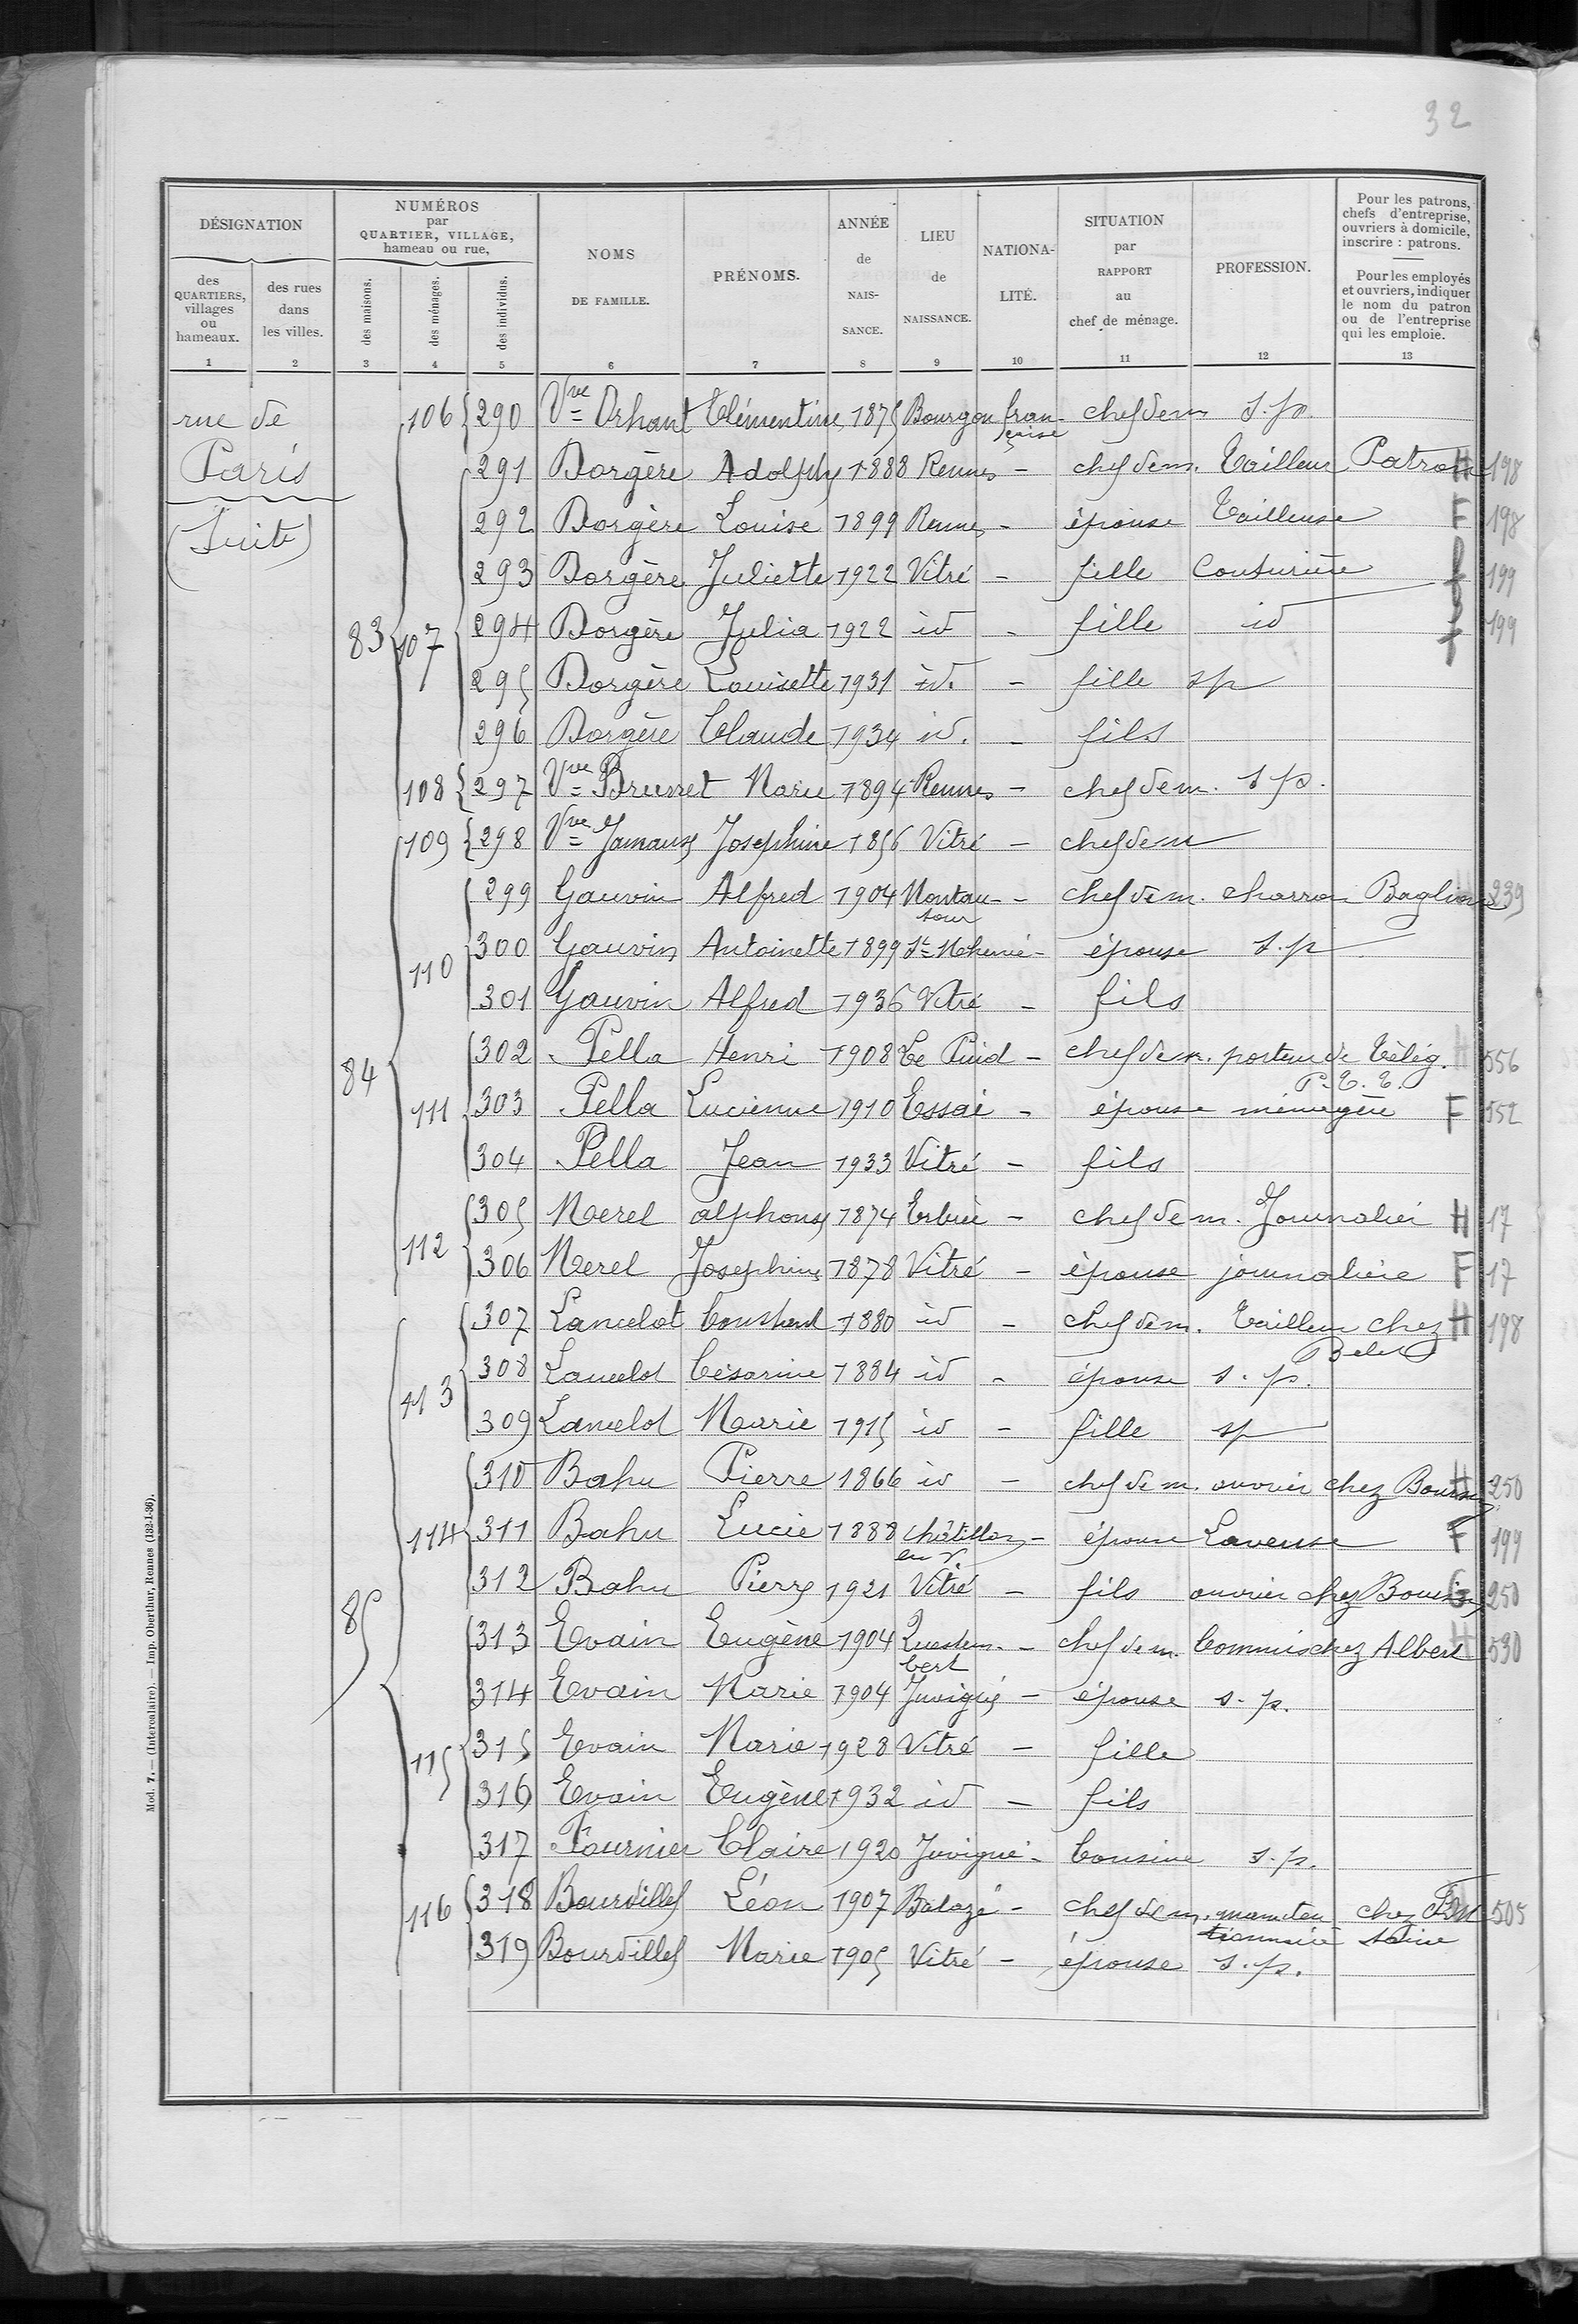 32
DÉSIGNATION
NUMÉROS
par
QUARTIER, VILLAGE,
hameau ou rue,
NOMS
DE FAMILLE.
PRÉNOMS.
ANNÉE
de
NAIS-
SANCE.
LIEU
de
NAISSANCE.
NATIONA-
LITÉ.
SITUATION
par
RAPPORT
au
chef de ménage.
PROFESSION.
Pour les patrons,
chefs d'entreprise,
ouvriers à domicile,
inscrire : patrons.
Pour les employés
et ouvriers, indiquer
le nom du patron
ou de l'entreprise
qui les emploie.
des
QUARTIERS,
villages
ou
hameaux.
des rues
dans
les villes.
des maisons.
des ménages.
des individus.
1 2 3 4 5 6 7 8 9 10 11 12 13
rue de
Paris
(Suite)
106 290 Vve Orhant Clémentine 1875 Bourgon fran-
çaise chef de m s.p
83 107
291 Dorgère Adolphe 1888 Rennes - chef de m. Tailleur Patron H 198
292 Dorgère Louise 1899 Rennes - épouse Tailleuse F 198
293 Dorgère Juliette 1922 Vitré - fille Couturière f 199
294 Dorgère Julia 1922 id - fille id f 199
295 Dorgère Louisette 1931 id. - fille sp
296 Dorgère Claude 1934 id. - fils
108 297 Vve Brunet Marie 1894 Rennes - chef de m. s p.
84
109 298 Vve Jamaux Josephine 1856 Vitré - chef de m
110
299 Gauvin Alfred 1904 Montau-
tour - chef de m. charron Baglion 239
300 Gauvin Antoinette 1899 St Mhervé - épouse s.p
301 Gauvin Alfred 1936 Vitré - fils
111
302 Pella Henri 1908 Le Puid - chef de m. porteur de Télég. H 556
P.T.T.
303 Pella Lucienne 1910 Essai - épouse ménagère F 552
304 Pella Jean 1933 Vitré - fils
112
305 Merel alphonse 1874 Erbrée - chef de m. Journalier H 17
306 Merel Josephine 1878 Vitré - épouse journalière F 17
85
113
307 Lancelot Constant 1880 id - chef de m. Tailleur chez H 198
308 Lancelot Césarine 1884 id - épouse s. p.
309 Lancelot Marie 1915 id - fille sp
114
310 Bahu Pierre 1866 id - chef de m. ouvrier chez H 250
311 Bahu Lucie 1888 Châtillon
en V. - épouse Laveuse F 199
312 Bahu Pierre 1921 Vitré - fils ouvrier chez G 250
115
313 Evain Eugène 1904 Questem-
bert - chef de m. Commis chez Albert H 530
314 Evain Marie 1904 Juvigné - épouse s. p.
315 Evain Marie 1928 Vitré - fille
316 Evain Eugène 1932 id - fils
317 Fournier Claire 1920 Juvigné - Cousine s.p.
116
318 Bourdillel Léon 1907 Balazé - chef de m. manuten
tionnaire chez 505
319 Bourdillel Marie 1905 Vitré - épouse s.p.
Mod. 7. — (Intercalaire). — Imp. Oberthur, Rennes (132-1-36).